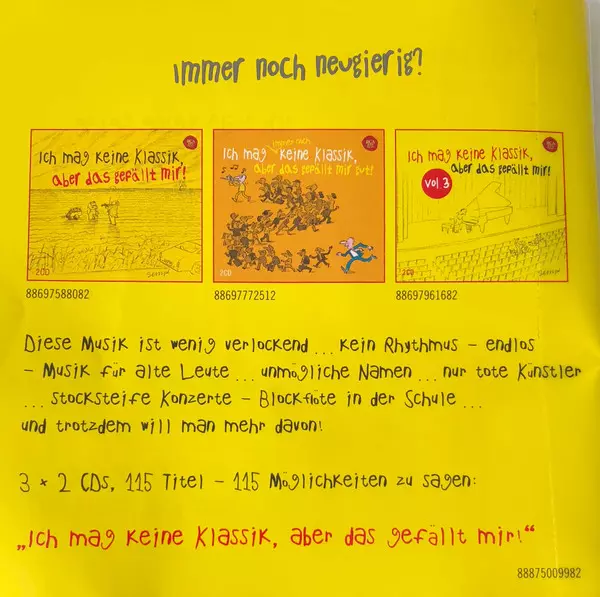 Immer noch neugierig?
Ich mag keine Klassik,
aber das gefällt mir!
2CD
88697588082
immer noch
Ich mag keine Klassik,
aber das gefällt mir gut!
2CD
88697772512
Ich mag keine Klassik,
aber das gefällt mir!
Vol. 3
2CD
88697961682
Diese Musik ist wenig verlockend ... kein Rhythmus – endlos
– Musik für alte Leute ... unmögliche Namen ... nur tote Künstler
... stocksteife Konzerte – Blockflöte in der Schule ...
und trotzdem will man mehr davon!
3 × 2 CDs, 115 Titel – 115 Möglichkeiten zu sagen:
„Ich mag keine Klassik, aber das gefällt mir!“
88875009982